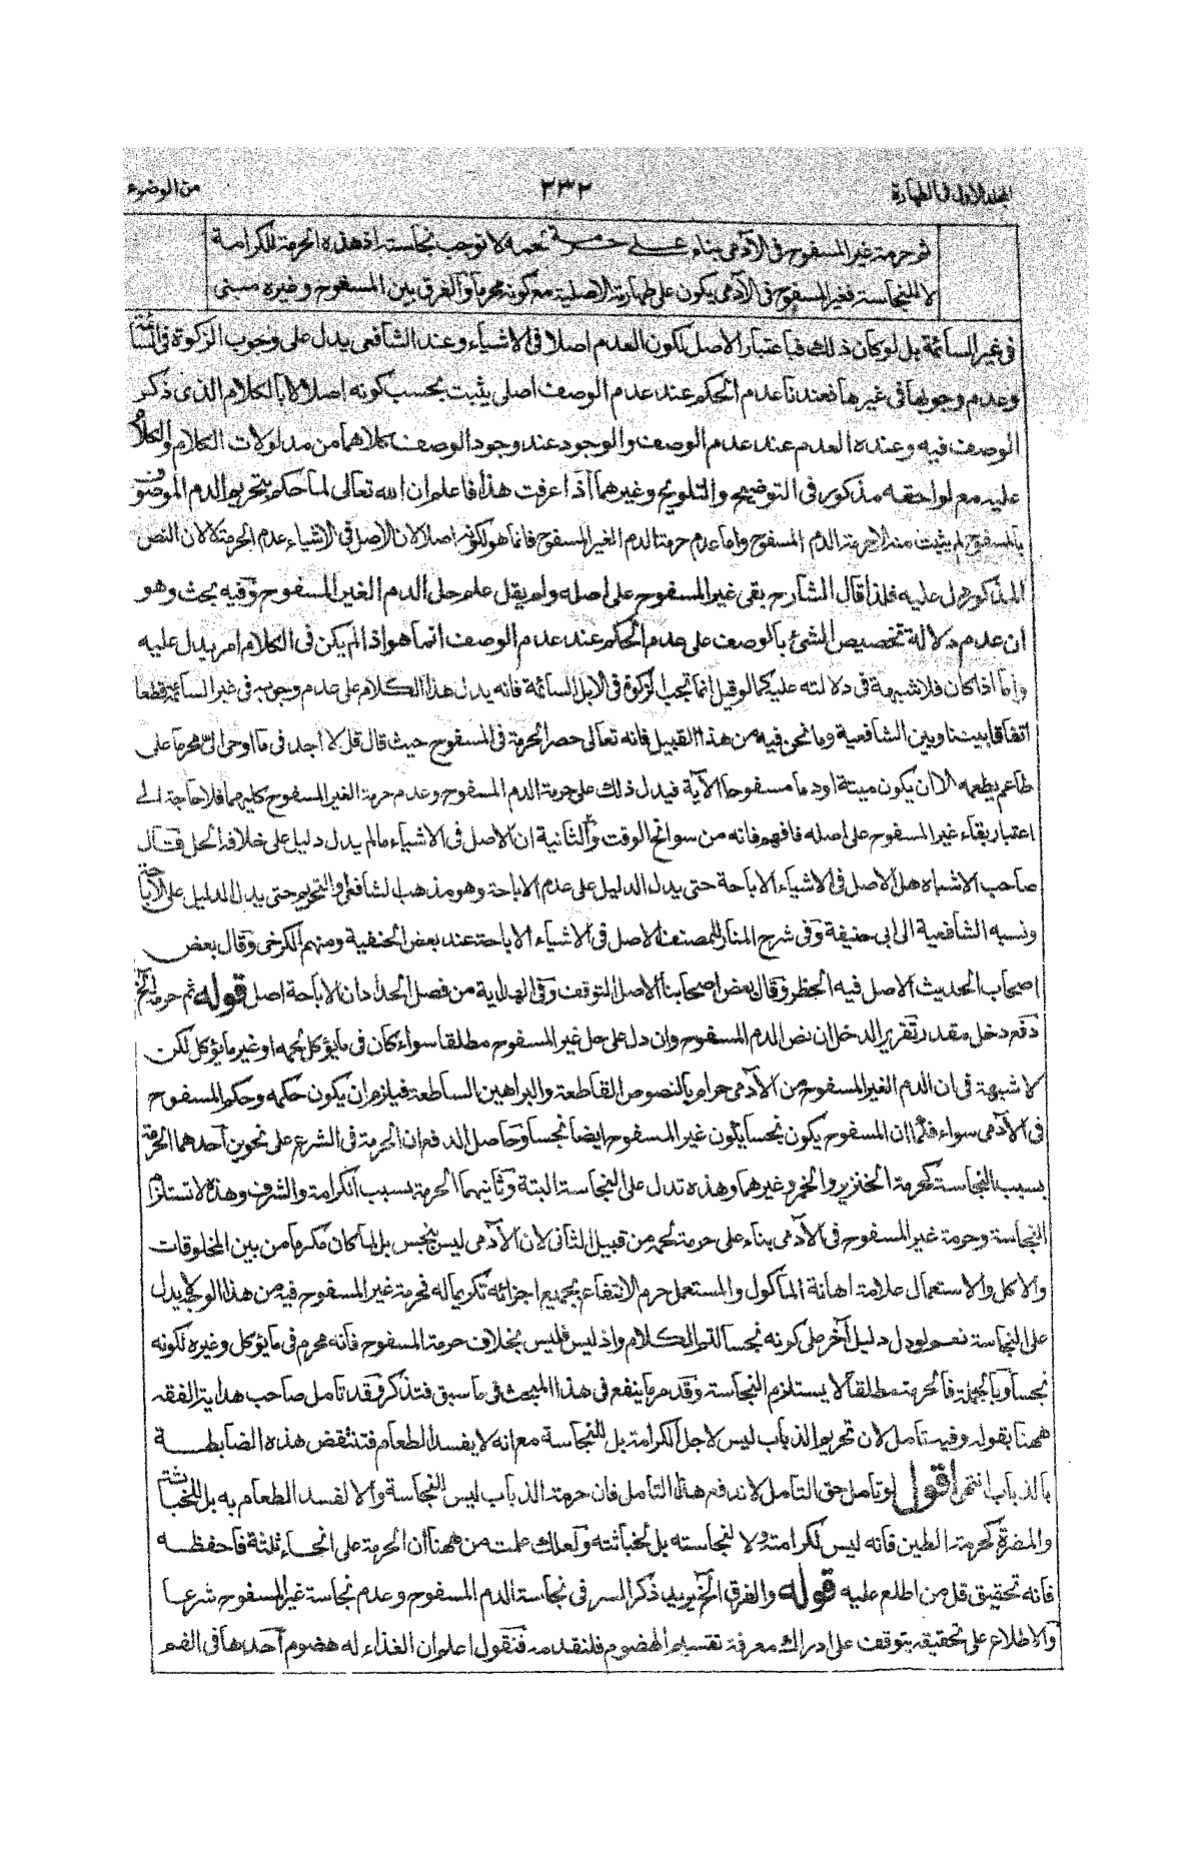 المجلد الاول فى الطهارة
٢٣٢
من الوضوء
ثم حرمة غير المسفوح فى الآدمى بناء على حرمة لحمه لا توجب نجاسته اذ هذه الحرمة للكرامة
لا للنجاسة فغير المسفوح فى الآدمى يكون على طهارته الاصلية مع كونه محرما والفرق بين المسفوح وغيره مبنى
فى غير السائمة بل لو كان ذلك فباعتبار الاصل لكون العدم اصلا فى الاشياء وعند الشافعى يدل على وجوب الزكوة فى السائمة
وعدم وجوبها فى غيرها فعندنا عدم الحكم عند عدم الوصف اصلى يثبت بحسب كونه اصلا لا بالكلام الذى ذكر
الوصف فيه وعنده العدم عند عدم الوصف والوجود عند وجود الوصف كلاهما من مدلولات الكلام والكلام
عليه مع لواحقه مذكور فى التوضيح والتلويح وغيرهما اذا عرفت هذا فاعلم ان الله تعالى لما حكم بتحريم الدم الموصوف
بالمسفوح لم يثبت منه الا حرمة الدم المسفوح واما عدم حرمة الدم الغير المسفوح فانما هو لكونه اصلا لان الاصل فى الاشياء عدم الحرمة لا لان النص
المذكور دل عليه فلذا قال الشارح بقى غير المسفوح على اصله ولم يقل علم حل الدم الغير المسفوح وفيه بحث وهو
ان عدم دلالة تخصيص الشئ بالوصف على عدم الحكم عند عدم الوصف انما هو اذا لم يكن فى الكلام امر يدل عليه
واما اذا كان فلا شبهة فى دلالته عليه كما لو قيل انما تجب الزكوة فى الابل السائمة فانه يدل هذا الكلام على عدم وجوبه فى غير السائمة قطعا
اتفاقا بيننا وبين الشافعية وما نحن فيه من هذا القبيل فانه تعالى حصر الحرمة فى المسفوح حيث قال قل لا اجد فى ما اوحى الى محرما على
طاعم يطعمه الا ان يكون ميتة او دما مسفوحا الآية فيدل ذلك على حرمة الدم المسفوح وعدم حرمة الغير المسفوح كليهما فلا حاجة الى
اعتبار بقاء غير المسفوح على اصله فافهم فانه من سوانح الوقت والثانية ان الاصل فى الاشياء ما لم يدل دليل على خلافه الحل قال
صاحب الاشباه هل الاصل فى الاشياء الاباحة حتى يدل الدليل على عدم الاباحة وهو مذهب الشافعى او التحريم حتى يدل الدليل على الاباحة
ونسبه الشافعية الى ابى حنيفة وفى شرح المنار للمصنف الاصل فى الاشياء الاباحة عند بعض الحنفية ومنهم الكرخى وقال بعض
اصحاب الحديث الاصل فيه الحظر وقال بعض اصحابنا الاصل التوقف وفى الهداية من فصل الحداد ان الاباحة اصل قوله ثم حرمة الخ
دفع دخل مقدر تقرير الدخل ان نص الدم المسفوح وان دل على حل غير المسفوح مطلقا سواء كان فى ما يؤكل لحمه او غير ما يؤكل لكن
لا شبهة فى ان الدم الغير المسفوح من الآدمى حرام بالنصوص القاطعة والبراهين الساطعة فيلزم ان يكون حكمه وحكم المسفوح
فى الآدمى سواء فكما ان المسفوح يكون نجسا يكون غير المسفوح ايضا نجسا وحاصل الدفع ان الحرمة فى الشرع على نحوين احدهما الحرمة
بسبب النجاسة كحرمة الخنزير والخمر وغيرهما وهذه تدل على النجاسة البتة وثانيهما الحرمة بسبب الكرامة والشرف وهذه لا تستلزم
النجاسة وحرمة غير المسفوح فى الآدمى بناء على حرمة لحمه من قبيل الثانى لان الآدمى ليس بنجس بل لما كان مكرما من بين المخلوقات
والاكل والاستعمال علامة اهانة المأكول والمستعمل حرم الانتفاع بجميع اجزائه تكريما له فحرمة غير المسفوح فيه من هذا الوجه لا يدل
على النجاسة نعم لو دل دليل آخر على كونه نجسا لتم الكلام واذ ليس فليس بخلاف حرمة المسفوح فانه محرم فى ما يؤكل وغيره لكونه
نجسا وبالجملة فالحرمة مطلقا لا يستلزم النجاسة وقد مر ما ينفع فى هذا المبحث فى ما سبق فتذكر وقد تامل صاحب هداية الفقه
ههنا بقوله وفيه تامل لان تحريم الذباب ليس لاجل الكرامة بل للنجاسة مع انه لا يفسد الطعام فتنتقض هذه الضابطة
بالذباب انتهى اقول لو تامل حق التامل لاندفع هذا التامل فان حرمة الذباب ليس للنجاسة والا لفسد الطعام به بل للخباثة
والمضرة كحرمة الطين فانه ليس لكرامته ولا لنجاسته بل لخباثته ولعلك علمت من ههنا ان الحرمة على انحاء ثلثة فاحفظه
فانه تحقيق قل من اطلع عليه قوله والفرق الخ يريد ذكر السر فى نجاسة الدم المسفوح وعدم نجاسة غير المسفوح شرعا
والاطلاع على تحقيقه يتوقف على ادراك معرفة تقسيم الهضوم فلنقدمه فنقول اعلم ان الغذاء له هضوم احدها فى الفم